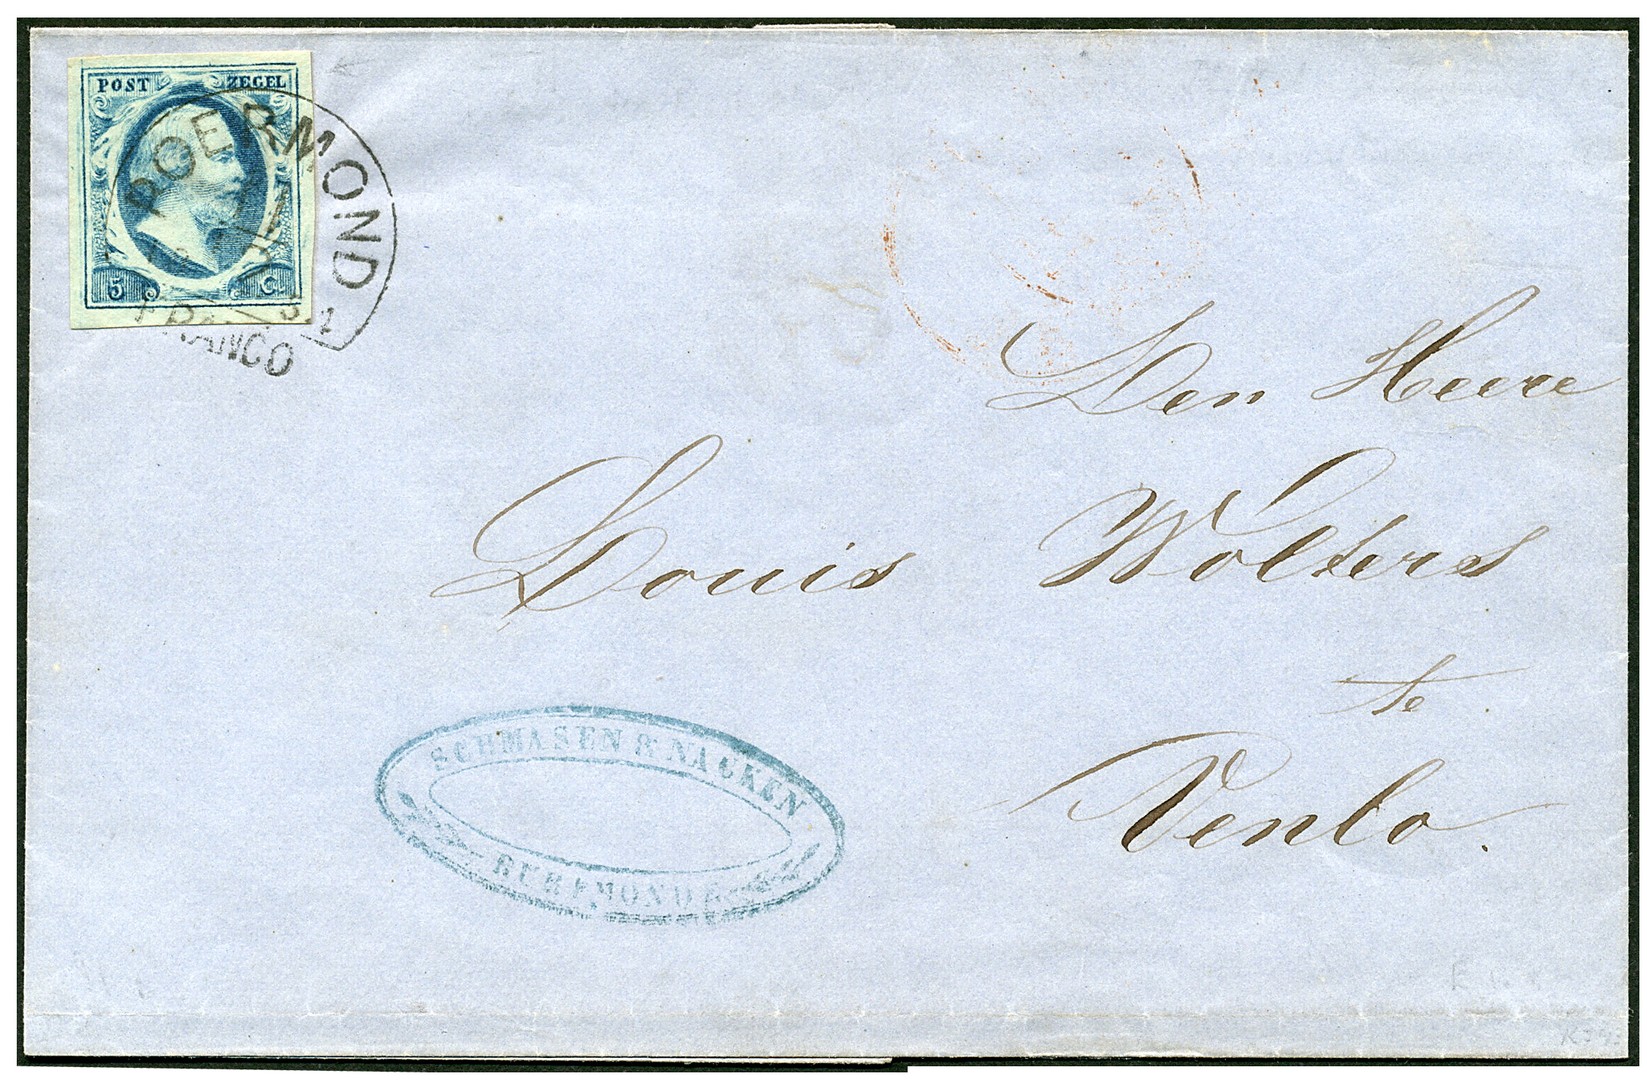 POST ZEGEL
5 C.
ROERMOND
FRANCO
Den Heere
Louis Wolters
te
Venlo.
SCHMASEN & NACKEN
RUREMONDE